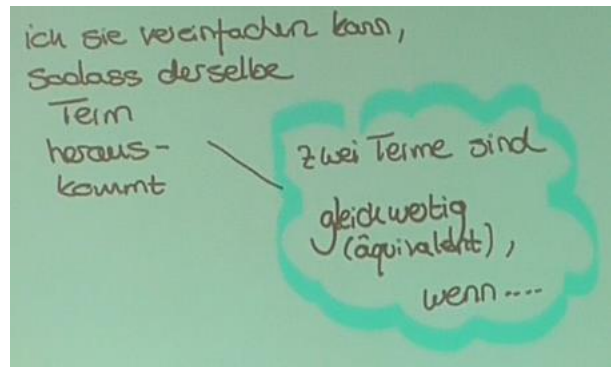 ich sie vereinfachen kann,
sodass derselbe
Term
heraus-
kommt
zwei Terme sind
gleichwertig
(äquivalent),
wenn....